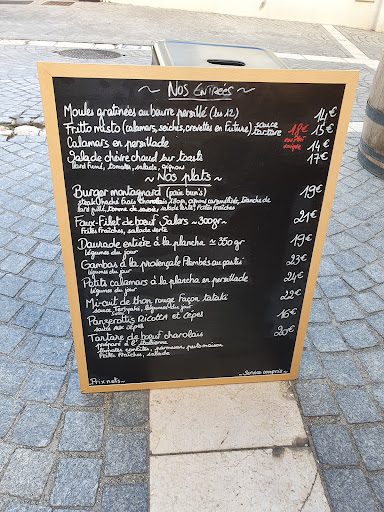 ~ Nos Entrées ~
Moules gratinées au beurre persillé (les 12) 14€
Fritto misto (calamars, seiches, crevettes en friture) sauce tartare 18€ 15€
Calamars en persillade 14€
Salade chèvre chaud sur toasts 17€
lard fumé, tomates, salade, oignon
~ Nos plats ~
Burger montagnard (pain bun's) 19€
steak haché frais charolais 180gr, oignons caramélisés, tranche de
lard grillé, tomme de savoie, salade verte, frites fraîches
Faux-Filet de bœuf Salers ~ 300gr ~ 21€
Frites Fraîches, salade verte
Daurade entière à la plancha ± 350 gr 19€
légumes du jour
Gambas à la provençale Flambés au pastis 23€
légumes du jour
Petits calamars à la plancha en persillade 24€
légumes du jour
Mi-cuit de thon rouge façon tataki 22€
sauce teriyaki, légumes du jour
Panzerottis Ricotta et cèpes 16€
sauce aux cèpes
Tartare de bœuf charolais 20€
préparé à l'italienne
tomates confites, parmesan, parmesan
Frites Fraîches, salade
Prix nets ~
~ Service compris ~